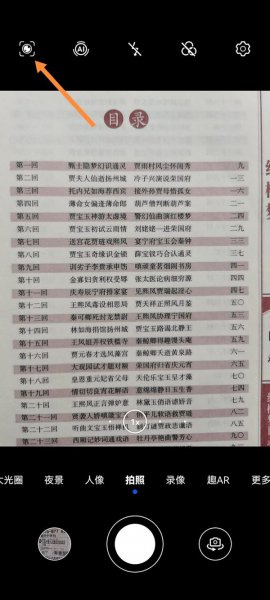 AI
目录
第一回 甄士隐梦幻识通灵 贾雨村风尘怀闺秀 九
第二回 贾夫人仙逝扬州城 冷子兴演说荣国府 一三
第三回 托内兄如海荐西宾 接外孙贾母惜孤女
第四回 薄命女偏逢薄命郎 葫芦僧判断葫芦案
第五回 贾宝玉神游太虚境 警幻仙曲演红楼梦
第六回 贾宝玉初试云雨情 刘姥姥一进荣国府
第七回 送宫花贾琏戏熙凤 宴宁府宝玉会秦钟
第八回 贾宝玉奇缘识金锁 薛宝钗巧合认通灵
第九回 训劣子李贵承申饬 嗔顽童茗烟闹书房
第十回 金寡妇贪利权受辱 张太医论病细穷源
第十一回 庆寿辰宁府排家宴 见熙凤贾瑞起淫心
第十二回 王熙凤毒设相思局 贾天祥正照风月鉴 五〇
第十三回 秦可卿死封龙禁尉 王熙凤协理宁国府
第十四回 林如海捐馆扬州城 贾宝玉路谒北静王
第十五回 王凤姐弄权铁槛寺 秦鲸卿得趣馒头庵
第十六回 贾元春才选凤藻宫 秦鲸卿夭逝黄泉路
第十七回 大观园试才题对额 荣国府归省庆元宵
第十八回 皇恩重元妃省父母 天伦乐宝玉呈才藻
第十九回 情切切良宵花解语 意绵绵静日玉生香
第二十回 王熙凤正言弹妒意 林黛玉俏语谑娇音
第二十一回 贤袭人娇嗔箴宝玉 软语救贾琏 八二
第二十二回 听曲文宝玉悟禅机 贾政悲谶语
第二十三回 西厢记妙词通戏语 牡丹亭艳曲警芳心 九〇
1x
大光圈 夜景 人像 拍照 录像 趣AR 更多